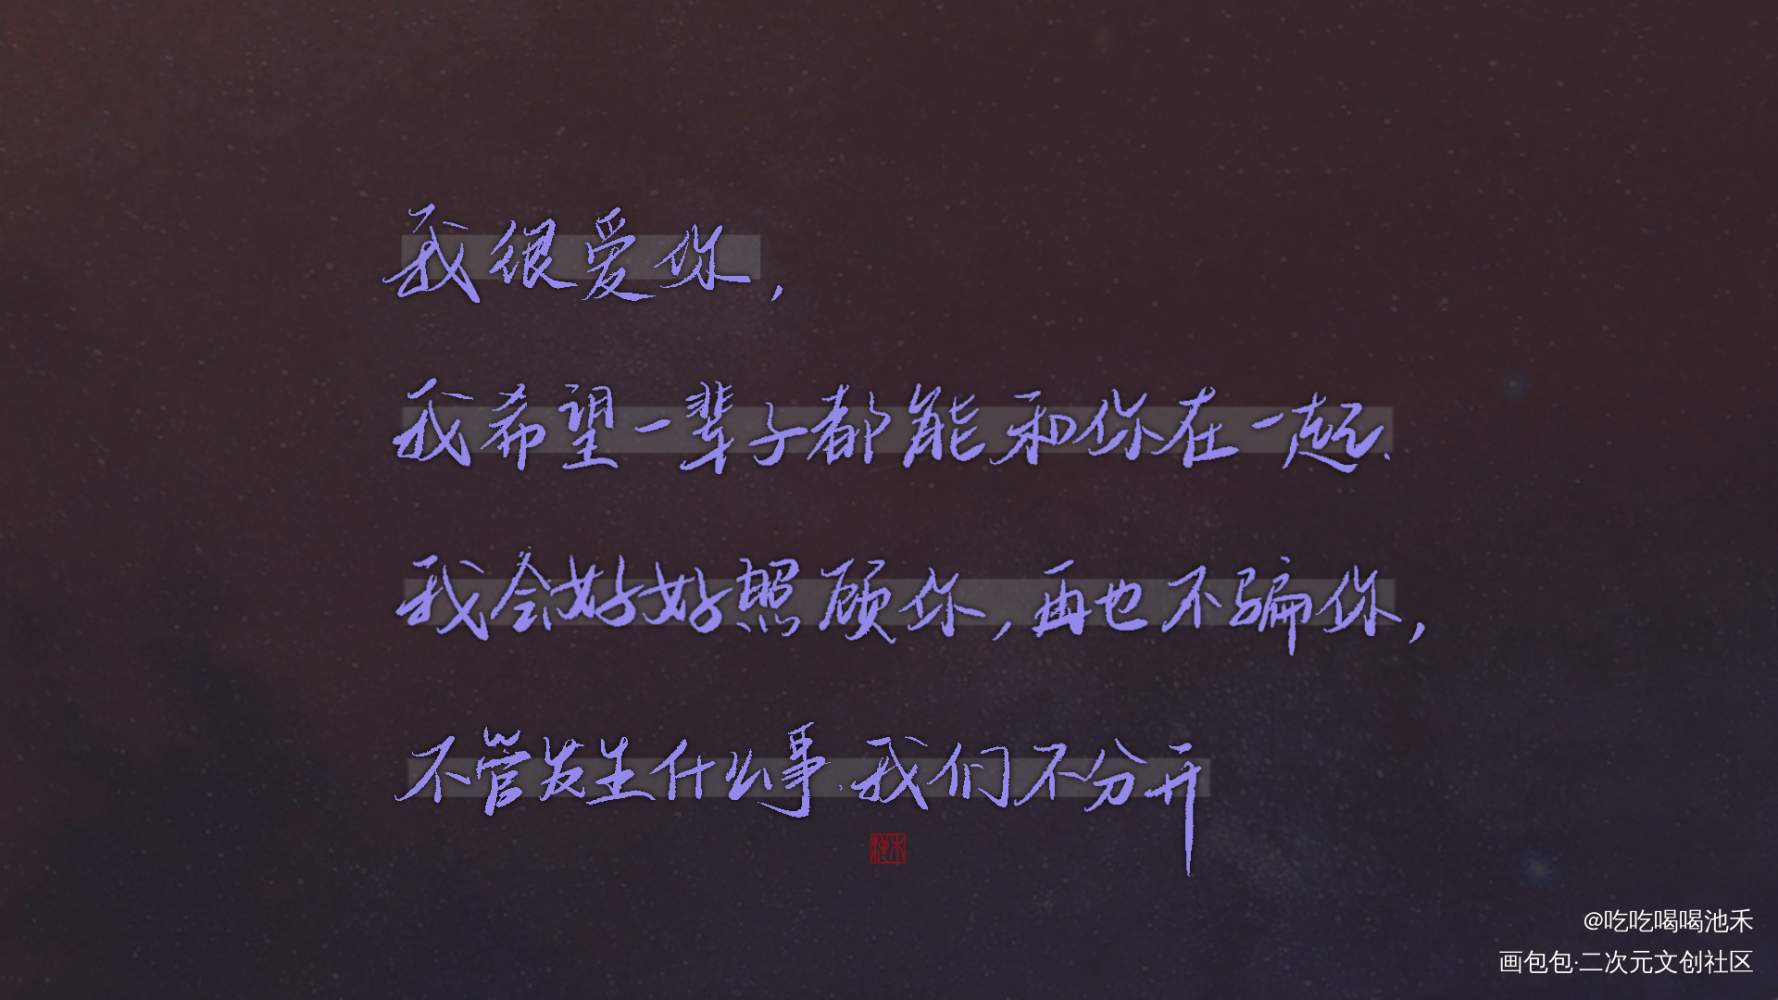 我很爱你，
我希望一辈子都能和你在一起、
我会好好照顾你，再也不骗你，
不管发生什么事、我们不分开
@吃吃喝喝池禾
画包包·二次元文创社区